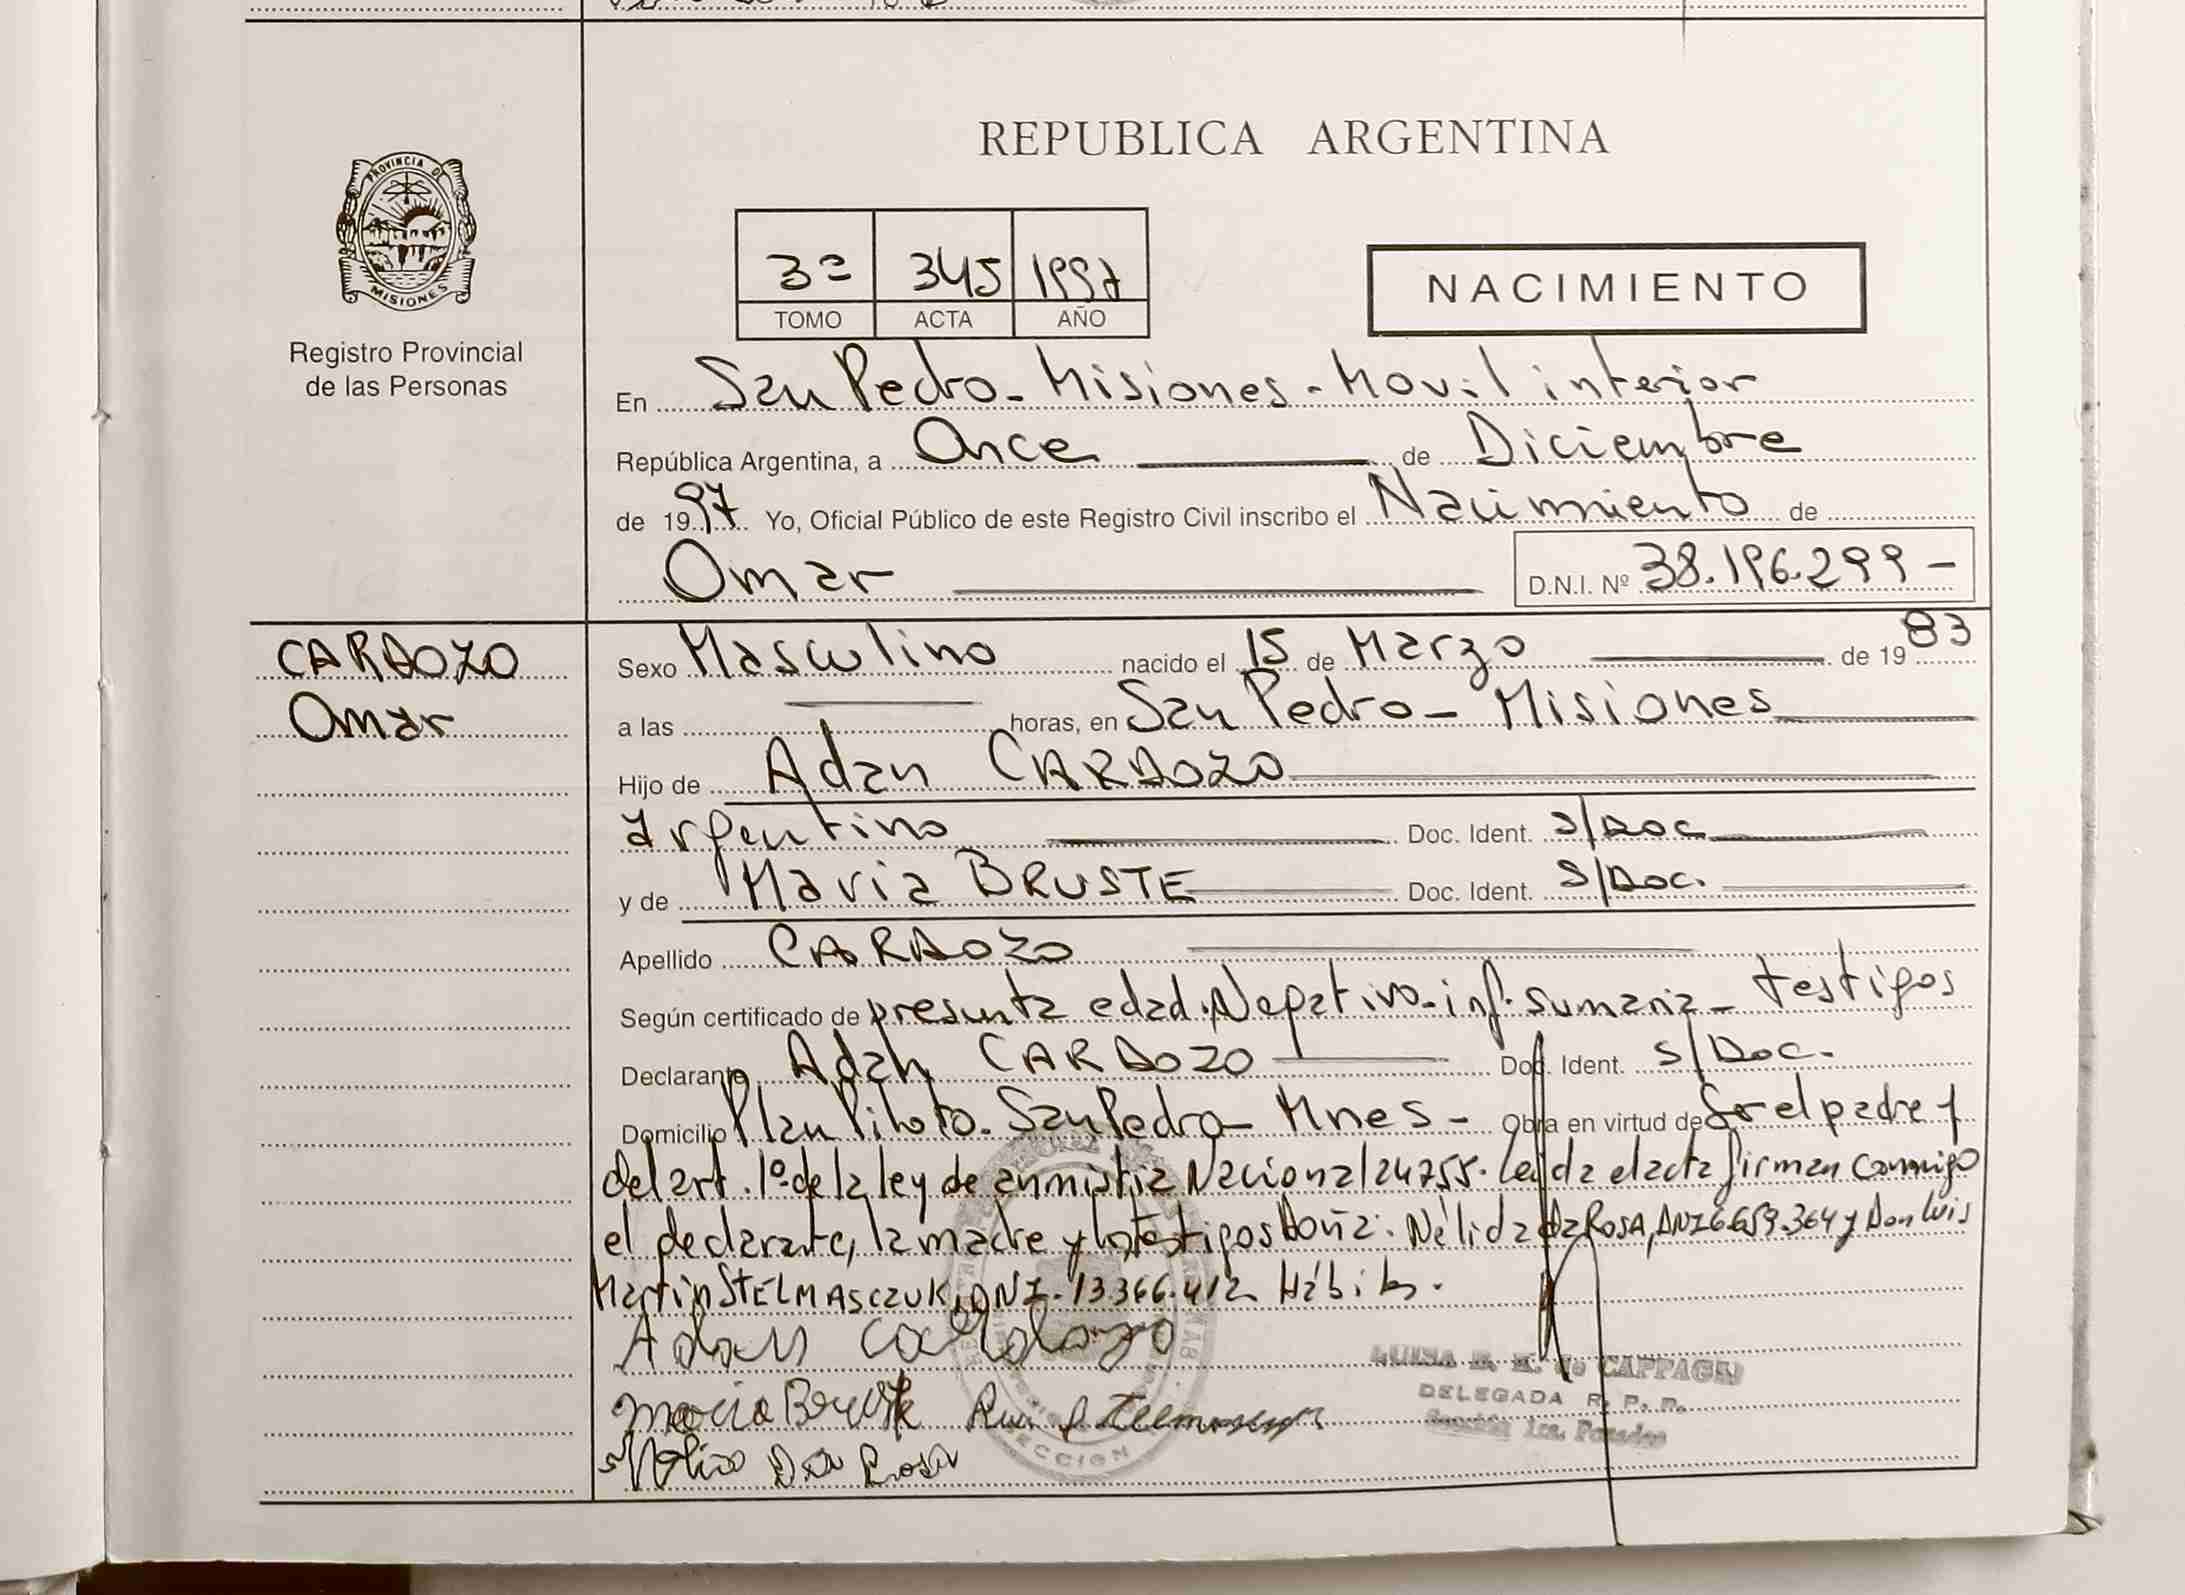 REPUBLICA ARGENTINA
PROVINCIA DE
MISIONES
Registro Provincial
de las Personas
3º 345 1997
TOMO ACTA AÑO
NACIMIENTO
En San Pedro - Misiones - Movil interior
República Argentina, a Once de Diciembre
de 1997 Yo, Oficial Público de este Registro Civil inscribo el Nacimiento de
Omar D.N.I. Nº 38.196.299 -
CARDOZO
Omar
Sexo Masculino nacido el 15 de Marzo de 1983
a las horas, en San Pedro - Misiones
Hijo de Adan CARDOZO
argentino Doc. Ident. S/Doc
y de Maria BRUSTE Doc. Ident. S/Doc.
Apellido CARDOZO
Según certificado de presunta edad. Negativo - inf. sumaria - testigos
Declarante Adan CARDOZO Doc. Ident. S/Doc.
Domicilio Plan Piloto. San Pedro - Mnes - Obra en virtud de ser el padre y
del art. 1º de la ley de anmistia Nacional 24755. Leida el acta firman conmigo
el declarante, la madre y los testigos Doña. Nélida da ROSA, DNI 6.659.364 y Don Luis
Martin STELMASCZUK, DNI. 13.366.412 Hábiles.
Adan Cardozo
Maria Bruste
Da Rosa
LUISA E. de CAPPAGLI
DELEGADA R. P. P.
Sección 1ra. Posadas
DIRECCION